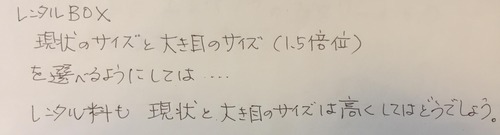 レンタルBOX
現状のサイズと大き目のサイズ(1.5倍位)
を選べるようにしては‥‥
レンタル料も 現状と大き目のサイズは高くしてはどうでしょう。